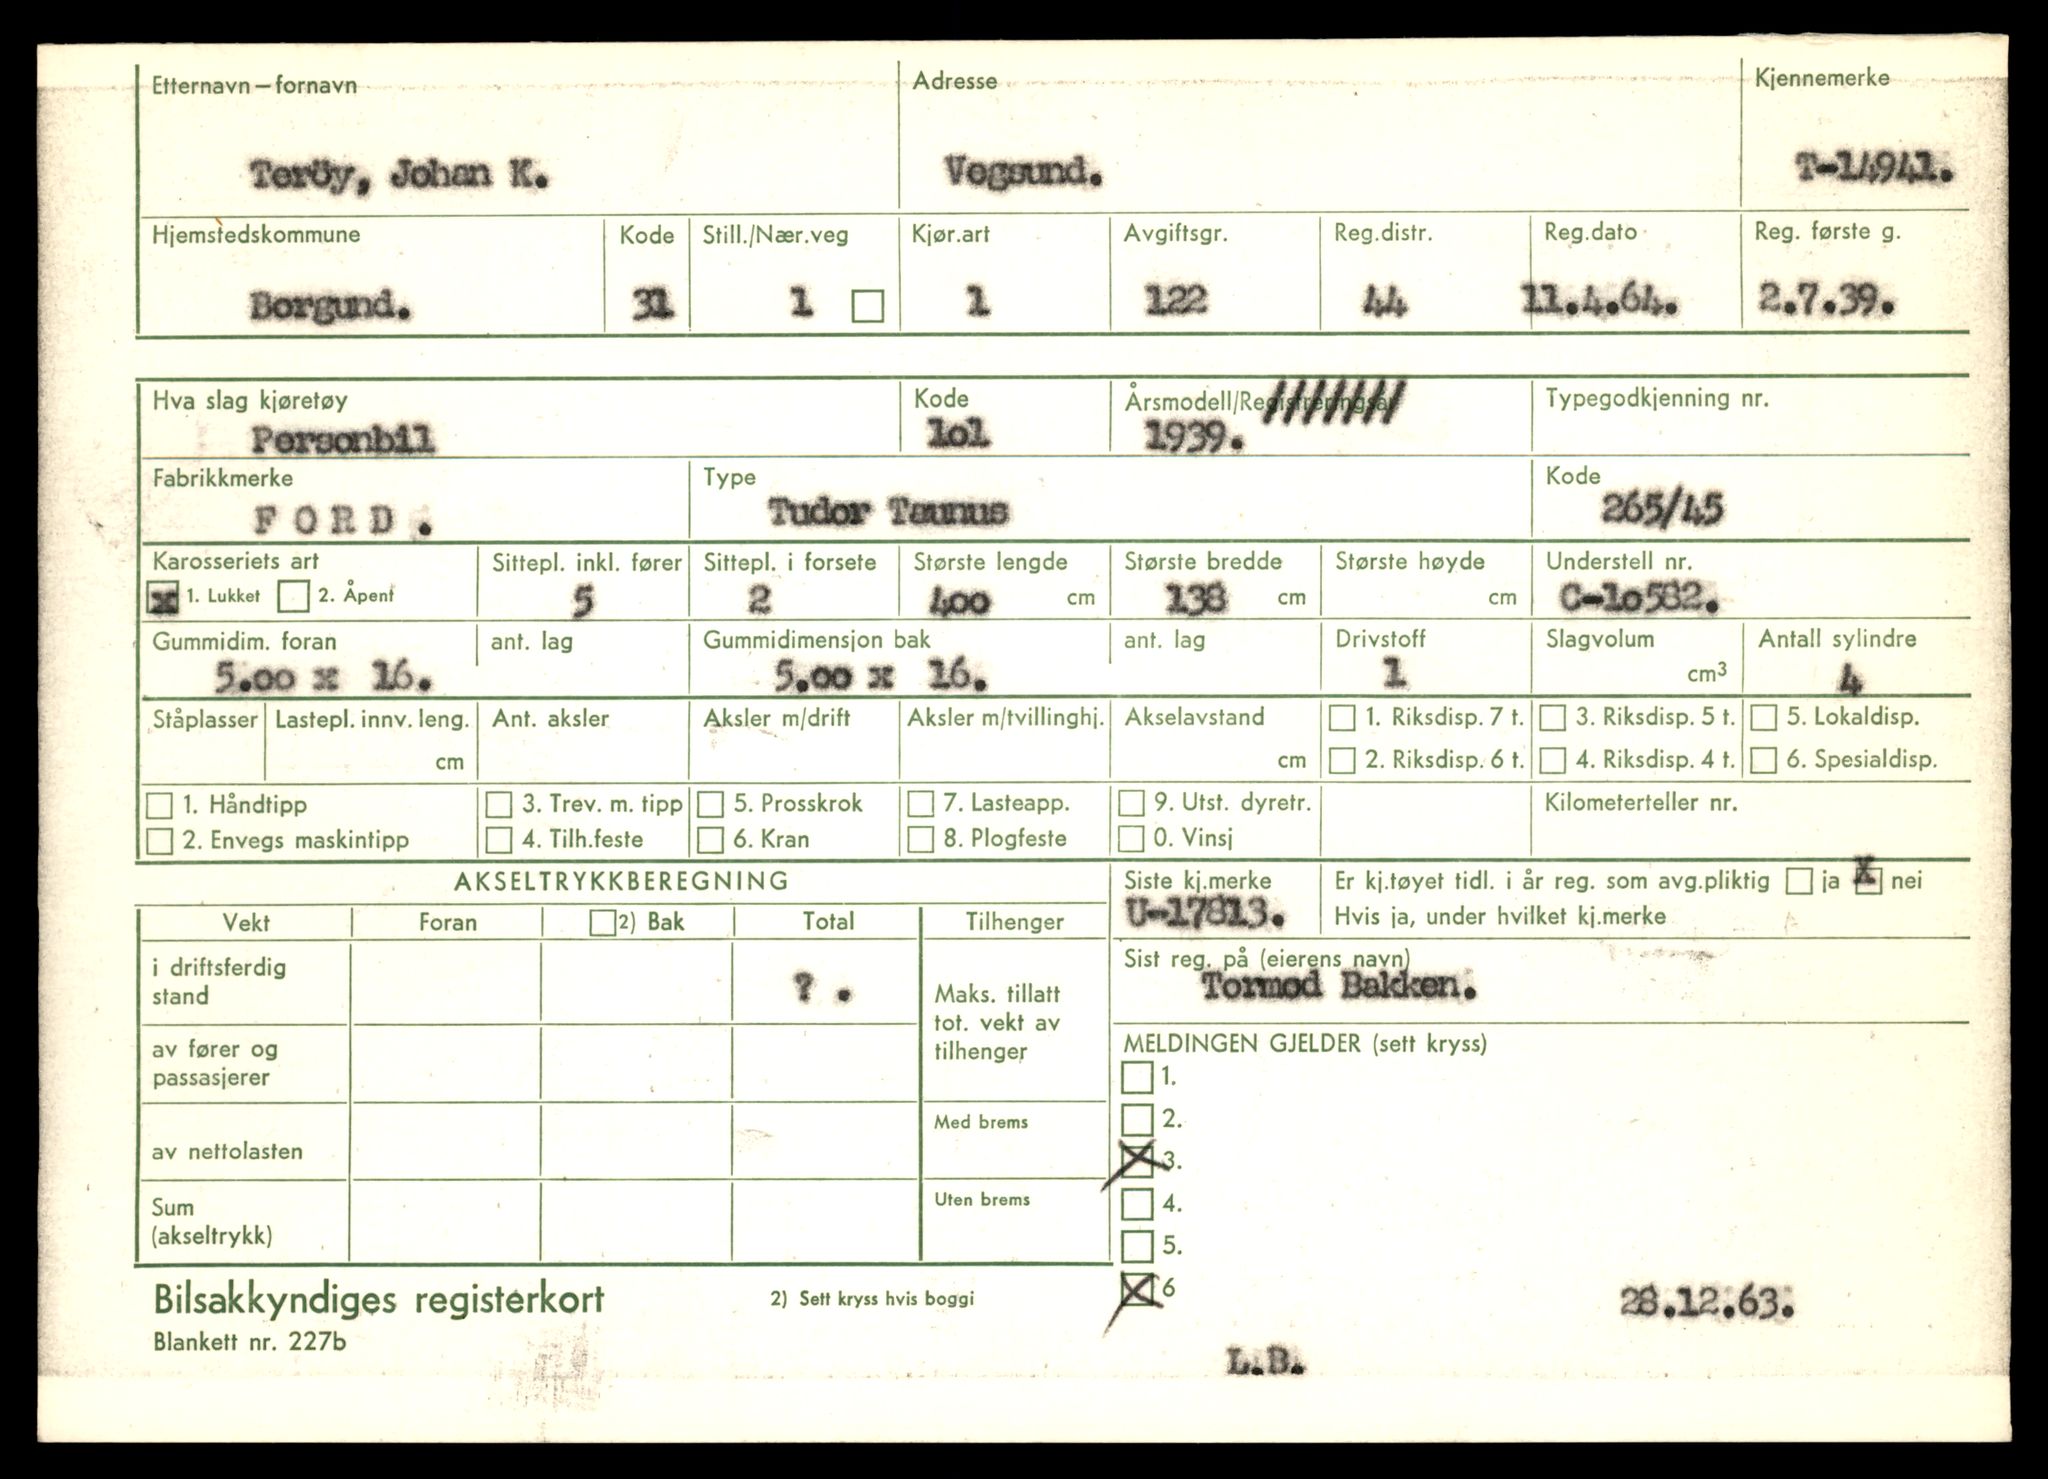 Etternavn – fornavn Adresse Kjennemerke
Teröy, Johan K. Vegsund. T-14941.
Hjemstedskommune Kode Still./Nær.veg Kjør.art Avgiftsgr. Reg.distr. Reg.dato Reg. første g.
Borgund. 31 1 1 122 44 11.4.64. 2.7.39.
Hva slag kjøretøy Kode Årsmodell/Registreringsår Typegodkjenning nr.
Personbil lol 1939. ///////
Fabrikkmerke Type Kode
FORD. Tudor Taunus 265/45
Karosseriets art Sittepl. inkl. fører Sittepl. i forsete Største lengde Største bredde Største høyde Understell nr.
x 1. Lukket 2. Åpent 5 2 400 cm 138 cm cm C-lo582.
Gummidim. foran ant. lag Gummidimensjon bak ant. lag Drivstoff Slagvolum Antall sylindre
5.oo x 16. 5.oo x 16. 1 cm3 4
Ståplasser Lastepl. innv. leng. Ant. aksler Aksler m/drift Aksler m/tvillinghj. Akselavstand 1. Riksdisp. 7 t. 3. Riksdisp. 5 t. 5. Lokaldisp.
cm cm 2. Riksdisp. 6 t. 4. Riksdisp. 4 t. 6. Spesialdisp.
1. Håndtipp 3. Trev. m. tipp 5. Prosskrok 7. Lasteapp. 9. Utst. dyretr. Kilometerteller nr.
2. Envegs maskintipp 4. Tilh.feste 6. Kran 8. Plogfeste 0. Vinsj
AKSELTRYKKBEREGNING Siste kj.merke Er kj.tøyet tidl. i år reg. som avg.pliktig ja X nei
U-17813. Hvis ja, under hvilket kj.merke
Vekt Foran 2) Bak Total Tilhenger
Sist reg. på (eierens navn)
Tormod Bakken.
i driftsferdig stand ? .
Maks. tillatt tot. vekt av tilhenger
MELDINGEN GJELDER (sett kryss)
av fører og passasjerer
1.
2.
Med brems
av nettolasten
X 3.
Uten brems
4.
Sum (akseltrykk)
5.
X 6
Bilsakkyndiges registerkort 2) Sett kryss hvis boggi 28.12.63.
Blankett nr. 227b
L.B.